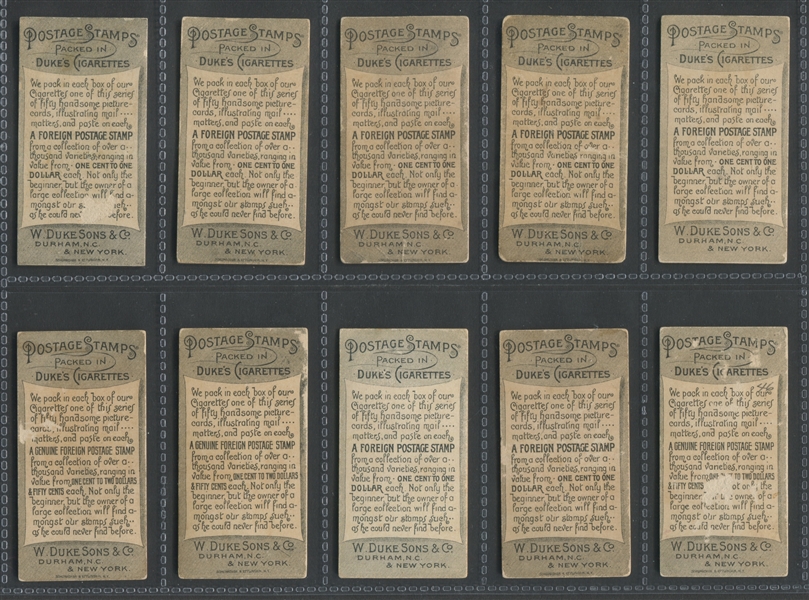 POSTAGE STAMPS
PACKED IN
DUKE'S CIGARETTES
We pack in each box of our
Cigarettes one of this series
of fifty handsome picture-
cards, illustrating mail ....
matters, and paste on each
A FOREIGN POSTAGE STAMP
from a collection of over a
thousand varieties, ranging in
value from ONE CENT TO ONE
DOLLAR each. Not only the
beginner, but the owner of a
large collection will find a-
mongst our s
as he could nev before.
W. DUKE SONS & Co.
DURHAM, N.C.
& NEW YORK.
POSTAGE STAMPS
PACKED IN
DUKE'S CIGARETTES
We pack in each box of our
Cigarettes one of this series
of fifty handsome picture-
cards, illustrating mail ....
matters, and paste on each
A FOREIGN POSTAGE STAMP
from a collection of over a
thousand varieties, ranging in
value from ONE CENT TO ONE
DOLLAR each. Not only the
beginner, but the owner of a
large collection will find a-
mongst our stamps such..
as he could never find before.
W. DUKE SONS & Co.
DURHAM, N.C.
& NEW YORK.
POSTAGE STAMPS
PACKED IN
DUKE'S CIGARETTES
We pack in each box of our
Cigarettes one of this series
of fifty handsome picture-
cards, illustrating mail ....
matters, and paste on each
A FOREIGN POSTAGE STAMP
from a collection of over a
thousand varieties, ranging in
value from ONE CENT TO ONE
DOLLAR each. Not only the
beginner, but the owner of a
large collection will find a-
mongst our stamps such..
as he could never find before.
W. DUKE SONS & Co.
DURHAM, N.C.
& NEW YORK.
POSTAGE STAMPS
PACKED IN
DUKE'S CIGARETTES
We pack in each box of our
Cigarettes one of this series
of fifty handsome picture-
cards, illustrating mail ....
matters, and paste on each
A FOREIGN POSTAGE STAMP
from a collection of over a
thousand varieties, ranging in
value from ONE CENT TO ONE
DOLLAR each. Not only the
beginner, but the owner of a
large collection will find a-
mongst our stamps such..
as he could never find before.
W. DUKE SONS & Co.
DURHAM, N.C.
& NEW YORK.
POSTAGE STAMPS
PACKED IN
DUKE'S CIGARETTES
We pack in each box of our
Cigarettes one of this series
of fifty handsome picture-
cards, illustrating mail ....
matters, and paste on each
A FOREIGN POSTAGE STAMP
from a collection of over a
thousand varieties, ranging in
value from ONE CENT TO ONE
DOLLAR each. Not only the
beginner, but the owner of a
large collection will find a-
mongst our stamps such..
as he could never find before.
W. DUKE SONS & Co.
DURHAM, N.C.
& NEW YORK.
POSTAGE STAMPS
PACKED IN
DUKE'S CIGARETTES
We pack in each box of our
Cigarettes one of this series
of fifty handsome picture-
cards, illustrating mail ....
matters, and paste on each
A GENUINE FOREIGN POSTAGE STAMP
from a collection of over a
thousand varieties, ranging in
value from ONE CENT TO TWO DOLLARS
& FIFTY CENTS each. Not only the
beginner, but the owner of a
large collection will find a-
mongst our stamps such..
as he could never find before.
W. DUKE SONS & Co.
DURHAM, N.C.
& NEW YORK.
POSTAGE STAMPS
PACKED IN
DUKE'S CIGARETTES
We pack in each box of our
Cigarettes one of this series
of fifty handsome picture-
cards, illustrating mail ....
matters, and paste on each
A GENUINE FOREIGN POSTAGE STAMP
from a collection of over a
thousand varieties, ranging in
value from ONE CENT TO TWO DOLLARS
& FIFTY CENTS each. Not only the
beginner, but the owner of a
large collection will find a-
mongst our stamps such..
as he could never find before.
W. DUKE SONS & Co.
DURHAM, N.C.
& NEW YORK.
POSTAGE STAMPS
PACKED IN
DUKE'S CIGARETTES
We pack in each box of our
Cigarettes one of this series
of fifty handsome picture-
cards, illustrating mail ....
matters, and paste on each
A FOREIGN POSTAGE STAMP
from a collection of over a
thousand varieties, ranging in
value from ONE CENT TO ONE
DOLLAR each. Not only the
beginner, but the owner of a
large collection will find a-
mongst our stamps such..
as he could never find before.
W. DUKE SONS & Co.
DURHAM, N.C.
& NEW YORK.
POSTAGE STAMPS
PACKED IN
DUKE'S CIGARETTES
We pack in each box of our
Cigarettes one of this series
of fifty handsome picture-
cards, illustrating mail ....
matters, and paste on each
A FOREIGN POSTAGE STAMP
from a collection of over a
thousand varieties, ranging in
value from ONE CENT TO ONE
DOLLAR each. Not only the
beginner, but the owner of a
large collection will find a-
mongst our stamps such..
as he could never find before.
W. DUKE SONS & Co.
DURHAM, N.C.
& NEW YORK.
POSTAGE STAMPS
PACKED IN
DUKE'S CIGARETTES
46
We pack in each box of our
Cigarettes one of this series
of fifty handsome picture-
cards, illustrating mail ....
matters, and paste on each
A GENUINE FOREIGN POSTAGE STAMP
from a collection of over a
thousand varieties, ranging in
value from ONE CENT TO TWO DOLLARS
& FIFTY CENTS
beginner, owner of a
large collection will find a-
mongst our stamps such..
as he could never find before.
W. DUKE SONS & Co.
DURHAM, N.C.
& NEW YORK.